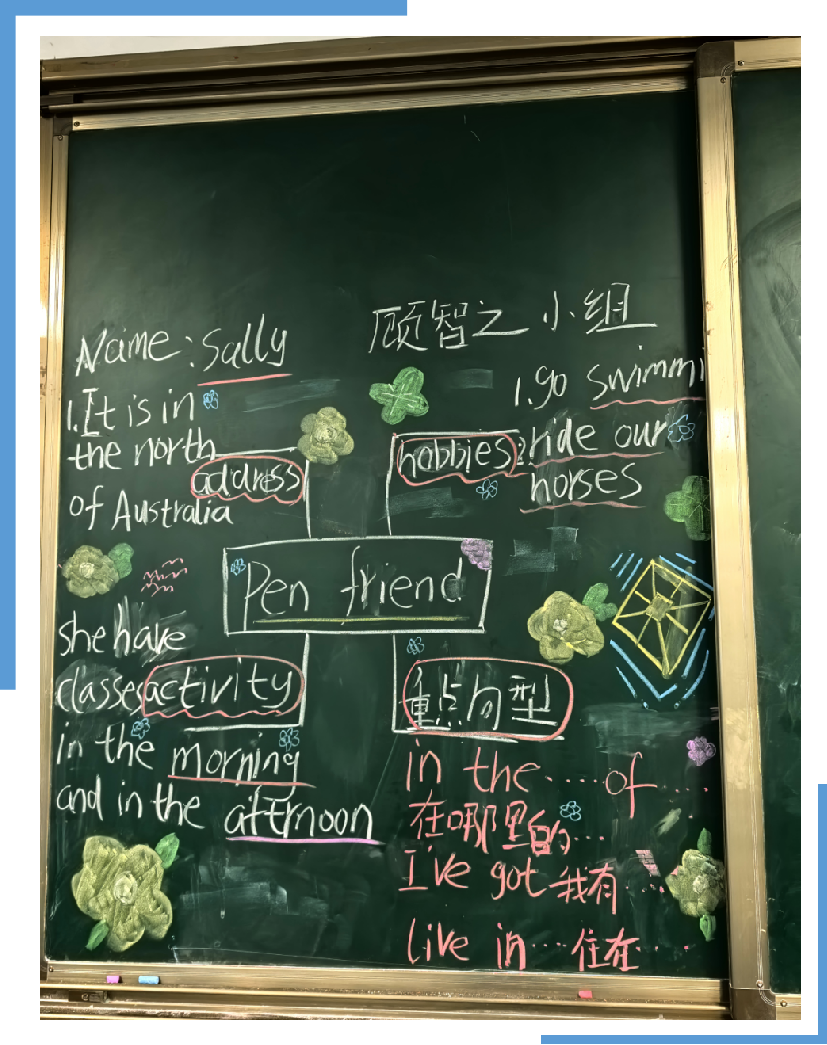 Name: Sally
顾智之小组
1. It is in
the north
of Australia
address
hobbies
1. go swimmi
2. ride our
horses
Pen friend
she have
classes
in the morning
and in the afternoon
activity
重点句型
in the....of....
在哪里的...
I've got 我有...
live in...住在...